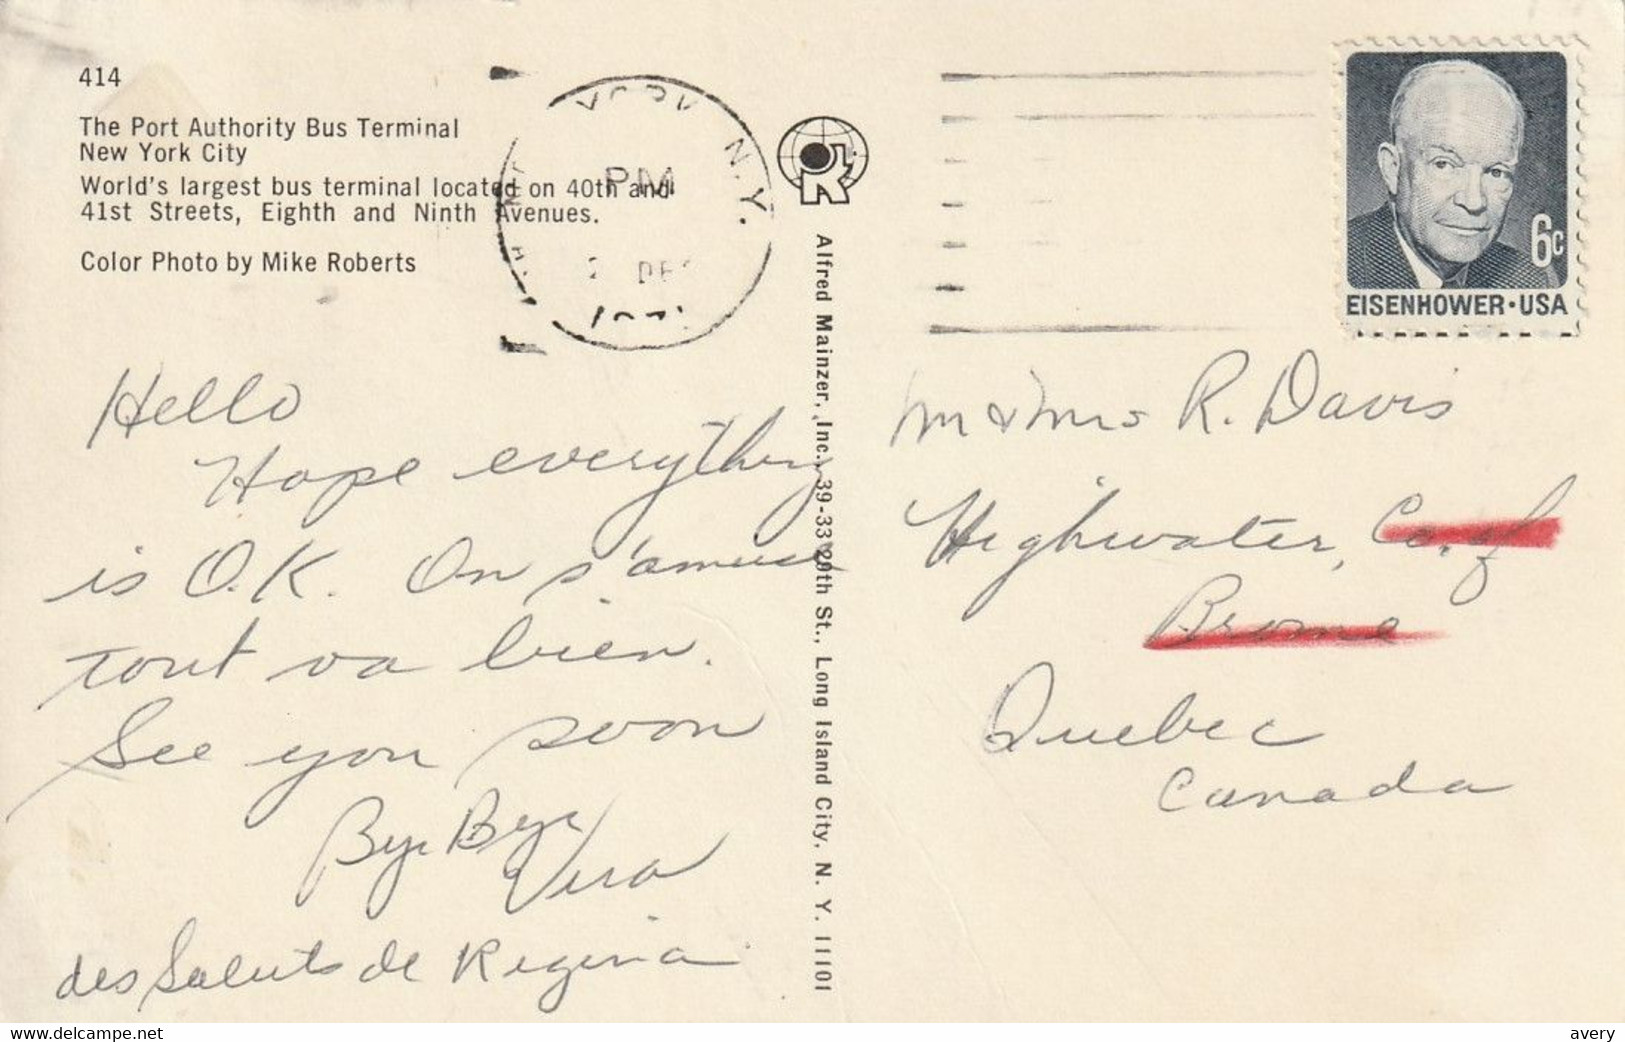 414
The Port Authority Bus Terminal
New York City
World's largest bus terminal located on 40th and
41st Streets, Eighth and Ninth Avenues.
Color Photo by Mike Roberts
YORK N.Y.
PM
DEC
Alfred Mainzer, Inc., 39-33 29th St., Long Island City, N. Y. 11101
6c
EISENHOWER·USA
Hello
Hope everything
is O.K. On s'amuse
tout va bien.
See you soon
Bye Bye
Vera
des Saluts de Regina
Mr & Mrs R. Davis
Highwater, Co. of
Brome
Quebec
Canada
www.delcampe.net
avery